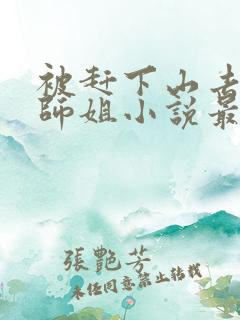 被赶下山去
师姐小说最
張艷芳
未任同意禁止转载